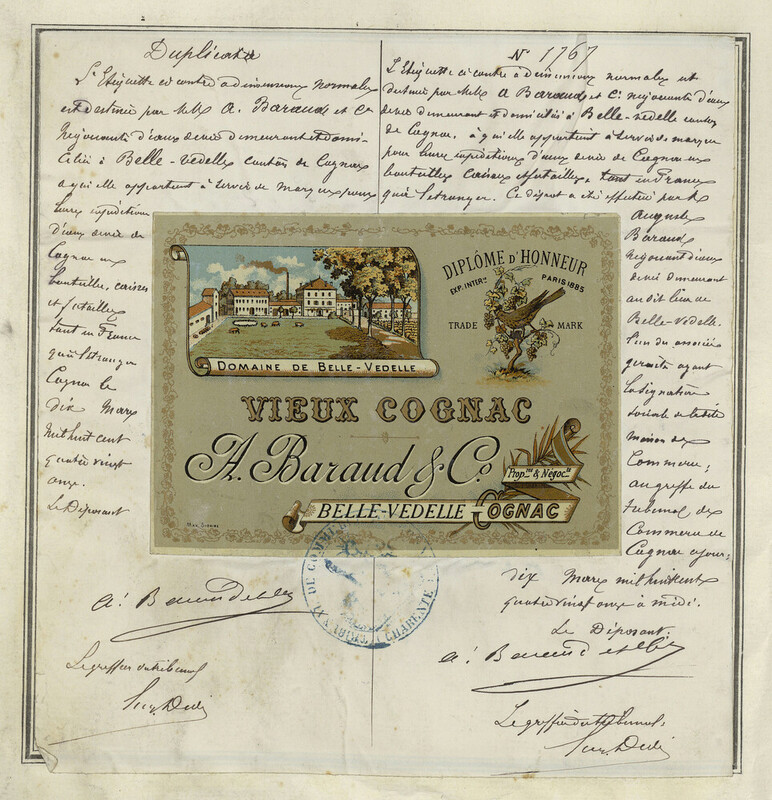 Duplicata
L'Etiquette ci contre a dimensions normales
est destinée par MM A. Baraud et Cie
Négociants d'eaux de vie demeurant et domi-
ciliés à Belle-Vedelle canton de Cognac
a qui elle appartient à servir de marque pour
leurs expéditions
d'eaux de vie de
Cognac en
bouteilles, caisses
et futailles
tant en France
qu'à l'étranger
Cognac le
dix Mars
mil huit cent
quatre vingt
onze.
Le Déposant
A. Baraud et Cie
Le greffier du tribunal
N° 1767
L'Etiquette ci contre à dimensions normales est
destinée par MM A Baraud et Cie négociants d'eaux
de vie demeurant et domiciliés à Belle-Vedelle canton
de Cognac, à qui elle appartient à servir de marque
pour leurs expéditions d'eaux de vie de Cognac en
bouteilles caisses et futailles, tant en France
qu'à l'étranger. Ce dépôt a été effectué par M
Auguste
Baraud
Négociant d'eaux
de vie demeurant
au dit lieu de
Belle-Vedelle.
l'un des associés
gérants ayant
la signature
sociale de la dite
maison de
Commerce,
au greffe du
tribunal de
Commerce de
Cognac ce jour,
dix Mars mil huit cent
quatre vingt onze à midi.
Le Déposant,
A. Baraud et Cie
Le greffier du tribunal,
DOMAINE DE BELLE-VEDELLE
DIPLÔME D'HONNEUR
EXP. INTERle PARIS 1885
TRADE MARK
VIEUX COGNAC
A. Baraud & Co
Propres & Négocts
BELLE-VEDELLE COGNAC
DE COMMERCE
CHARENTE